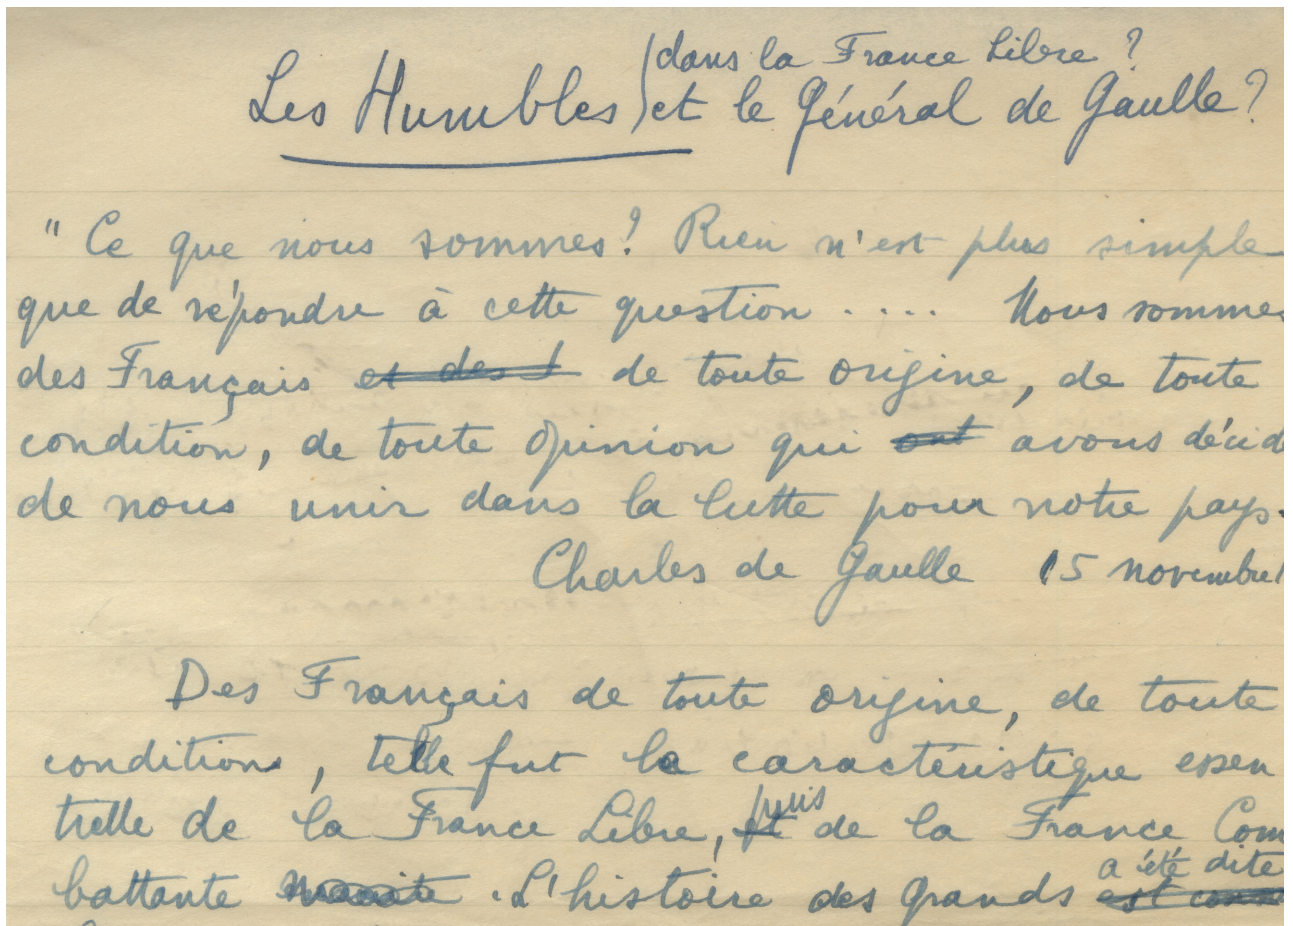 dans la France Libre ?
Les Humbles et le Général de Gaulle ?
" Ce que nous sommes ! Rien n'est plus simple
que de répondre à cette question ..... Nous sommes
des Français et des de toute origine, de toute
condition, de toute opinion qui ont avons décid
de nous unir dans la lutte pour notre pays.
Charles de Gaulle 15 novembre
Des Français de toute origine, de toute
condition, telle fut la caractéristique essen
tielle de la France Libre, puis de la France Com
battante . L'histoire des grands a été dite